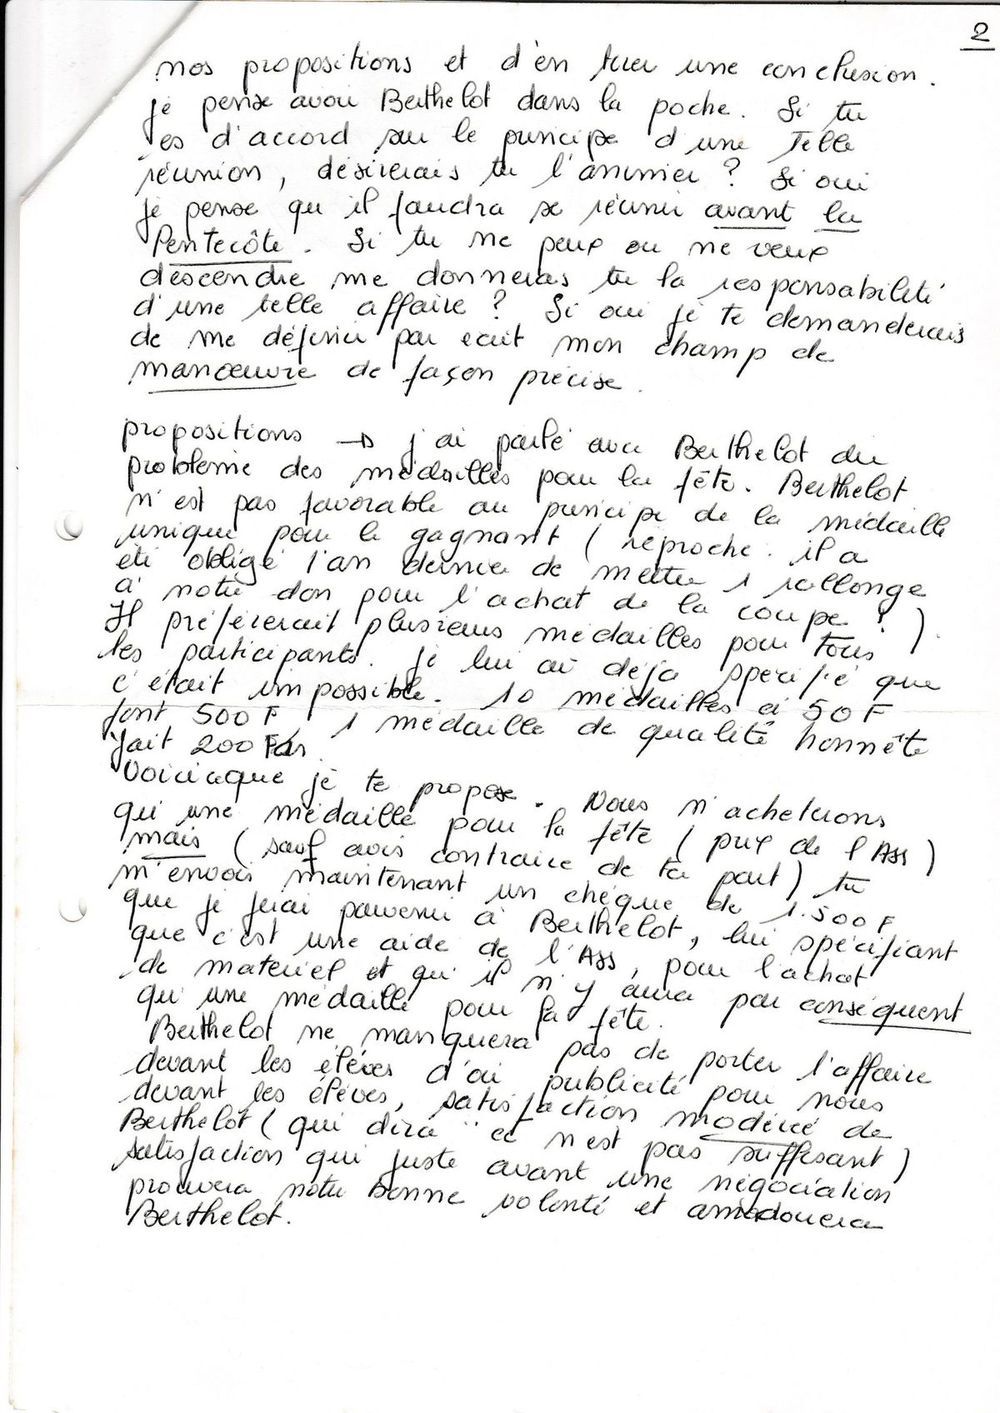 2
nos propositions et d'en tirer une conclusion.
Je pense avoir Berthelot dans la poche. Si tu
es d'accord sur le principe d'une telle
réunion, désirerais tu l'animer ? Si oui
je pense qu'il faudra se réunir avant la
Pentecôte. Si tu ne peux ou ne veux
descendre me donneras tu la responsabilité
d'une telle affaire ? Si oui je te demanderais
de me définir par écrit mon champ de
manœuvre de façon précise.
propositions → j'ai parlé avec Berthelot du
problème des médailles pour la fête. Berthelot
n'est pas favorable au principe de la médaille
unique pour le gagnant ( reproche : il a
été obligé l'an dernier de mettre 1 rallonge
à notre don pour l'achat de la coupe ! ).
Il préfèrerait plusieurs médailles pour tous
les participants. Je lui ai déjà spécifié que
c'était impossible. 10 médailles à 50 F
font 500 F, 1 médaille de qualité honnête
fait 200 F
Voici ce que je te propose. Nous n'achèterons
qu'une médaille pour la fête ( prix de l'Ass )
mais ( sauf avis contraire de ta part ) tu
m'envois maintenant un chèque de 1.500 F
que je ferai parvenir à Berthelot, lui spécifiant
que c'est une aide de l'Ass, pour l'achat
de matériel et qu'il n'y aura par conséquent
qu'une médaille pour la fête.
Berthelot ne manquera pas de porter l'affaire
devant les élèves d'où publicité pour nous
devant les élèves, satisfaction modérée de
Berthelot ( qui dira "ce n'est pas suffisant )
satisfaction qui juste avant une négociation
prouvera notre bonne volonté et amadouera
Berthelot.